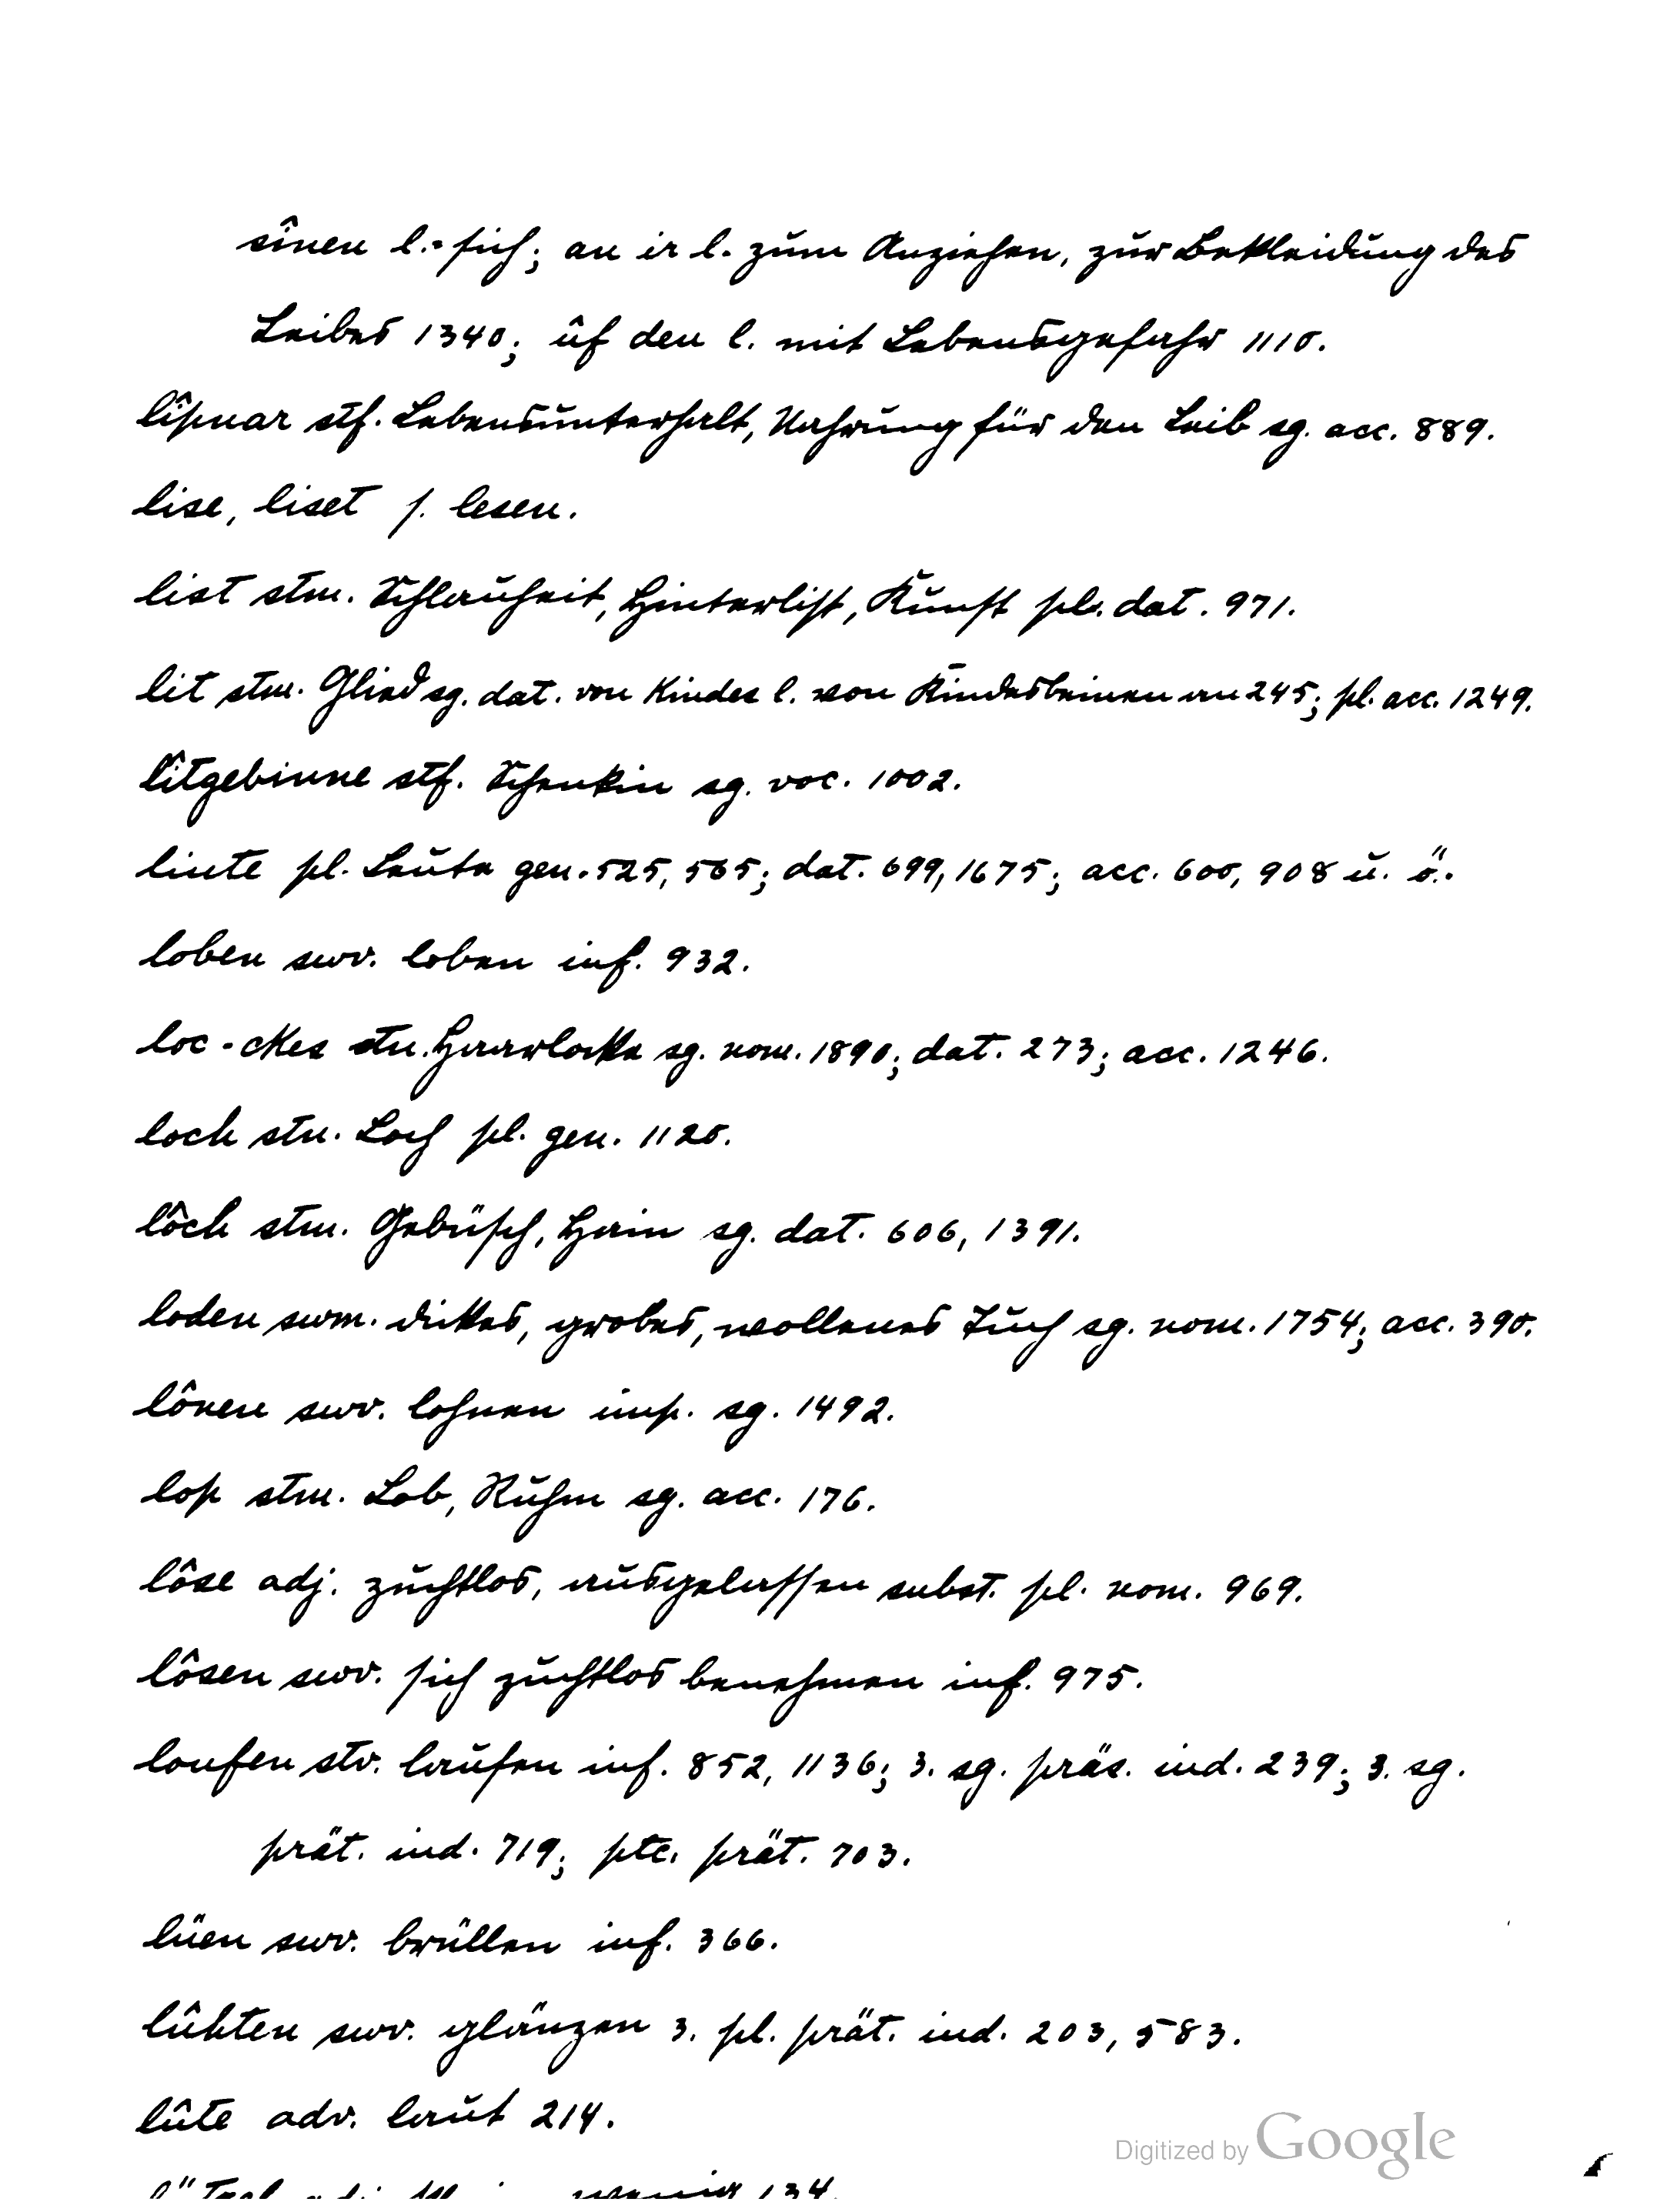 sînen l. = sich; an ir l. zum Anziehen, zur Bekleidung des
Leibes 1340; ûf den l. mit Lebensgefahr 1110.
lîpnar stf. Lebensunterhalt, Nahrung für den Leib sg. acc. 889.
lise, liset s. lesen.
list stm. Schlauheit, Hinterlist, Kunst pl. dat. 971.
lit stm. Glied sg. dat. von Kindes l. von Kindesbeinen an 245; pl. acc. 1249.
lîtgebinne stf. Schenkin sg. voc. 1002.
liute pl. Leute gen. 525, 565; dat. 699, 1675; acc. 600, 908 u. ö.
loben swv. loben inf. 932.
loc - ckes stm. Haarlocke sg. nom. 1890; dat. 273; acc. 1246.
loch stn. Loch pl. gen. 1120.
lôch stm. Gebüsch, Hain sg. dat. 606, 1391.
loden swm. dickes, grobes, wollenes Tuch sg. nom. 1754; acc. 390.
lônen swv. lohnen imp. sg. 1492.
lop stm. Lob, Ruhm sg. acc. 176.
lôse adj. zuchtlos, ausgelassen subst. pl. nom. 969.
lôsen swv. sich zuchtlos benehmen inf. 975.
loufen stv. laufen inf. 852, 1136; 3. sg. präs. ind. 239; 3. sg.
prät. ind. 719; ptc. prät. 703.
lüen swv. brüllen inf. 366.
lûhten swv. glänzen 3. pl. prät. ind. 203, 583.
lûte adv. laut 214.
wenig 134.
Digitized by Google